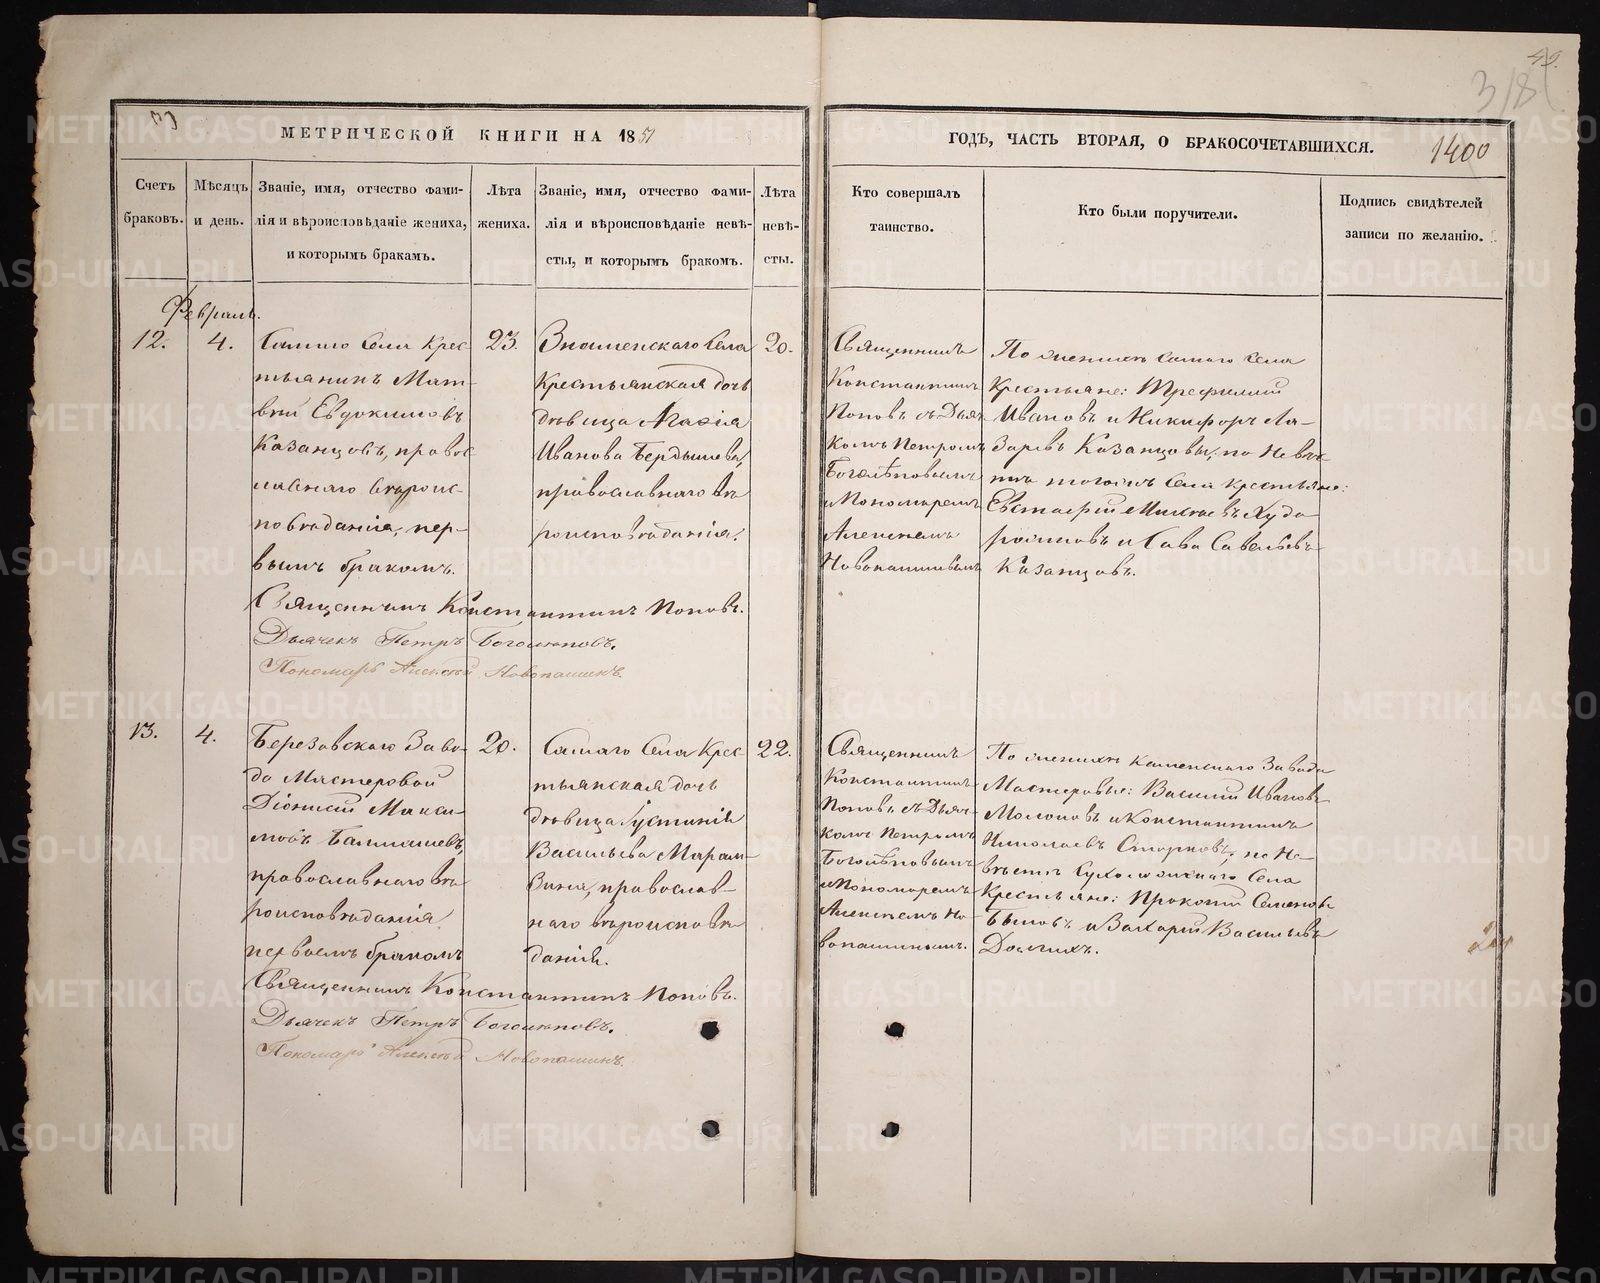 МЕТРИЧЕСКОЙ КНИГИ НА 1851
ГОДЪ, ЧАСТЬ ВТОРАЯ, О БРАКОСОЧЕТАВШИХСЯ.
1400
318
Счетъ
браковъ.
Мѣсяцъ
и день.
Званіе, имя, отчество фами-
лія и вѣроисповѣданіе жениха,
и которымъ бракамъ.
Лѣта
жениха.
Званіе, имя, отчество фами-
лія и вѣроисповѣданіе невѣ-
сты, и которымъ бракомъ.
Лѣта
невѣ-
сты.
Кто совершалъ
таинство.
Кто были поручители.
Подпись свидѣтелей
записи по желанію.
Февраль.
12.
4.
Самаго Села Крес-
тьянинъ Мат-
вѣй Евдокимовъ
Казанцовъ, правос-
лавнаго вѣроис-
повѣданія, пер-
вымъ бракомъ.
23.
Знаменскаго Села
Крестьянская дочь
дѣвица
Иванова Бердышева,
православнаго вѣ-
роисповѣданія.
20.
Священникъ
Константинъ
Поповъ съ Дьяч-
комъ Петромъ
Боголѣповымъ
и Пономаремъ
Алексѣемъ
Новопашинымъ
По женихѣ самаго села
Крестьяне: Трефилій
Ивановъ и Никифоръ Ла-
заревъ Казанцовы, по Невѣс-
тѣ тогожъ Села крестьяне:
Евстафій
и Сава Савельевъ
Казанцовъ.
Священникъ Константинъ Поповъ.
Дьячекъ Петръ Боголѣповъ.
Пономарь Алексѣй Новопашинъ.
13.
4.
Березовскаго Заво-
да Мастеровой
Діонисій Макси-
мовъ
православнаго вѣ-
роисповѣданія
первымъ бракомъ
20.
Самаго Села Крес-
тьянская дочь
дѣвица Іустинія
Васильева
православ-
наго вѣроисповѣ-
данія.
22.
Священникъ
Константинъ
Поповъ съ Дьяч-
комъ Петромъ
Боголѣповымъ
и Пономаремъ
Алексѣемъ Но-
вопашинымъ.
По женихѣ Каменскаго Завода
Мастеровые: Василій Ивановъ
и Константинъ
Николаевъ по Не-
вѣстѣ Сухоложскаго Села
Крестьяне: Прокопій Семеновъ
Быковъ и Захарій Васильевъ
Долгихъ.
Священникъ Константинъ Поповъ.
Дьячекъ Петръ Боголѣповъ.
Пономарь Алексѣй Новопашинъ.
METRIKI.GASO-URAL.RU